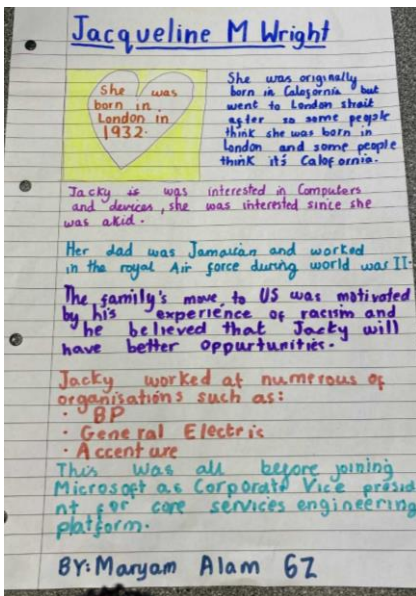 Jacqueline M Wright
She was
born in
London in
1932.
She was originally
born in Calofornia but
went to London strait
after so some people
think she was born in
London and some people
think it's Calofornia.
Jacky is was interested in Computers
and devices, she was interested since she
was akid.
Her dad was Jamaican and worked
in the royal Air force during world war II.
The family's move to US was motivated
by his experience of racism and
he believed that Jacky will
have better oppurtunities.
Jacky worked at numerous of
organisations such as:
· BP
· General Electric
· Accenture
This was all before joining
Microsoft as Corporate Vice presid
nt for core services engineering
platform.
BY: Maryam Alam 6Z